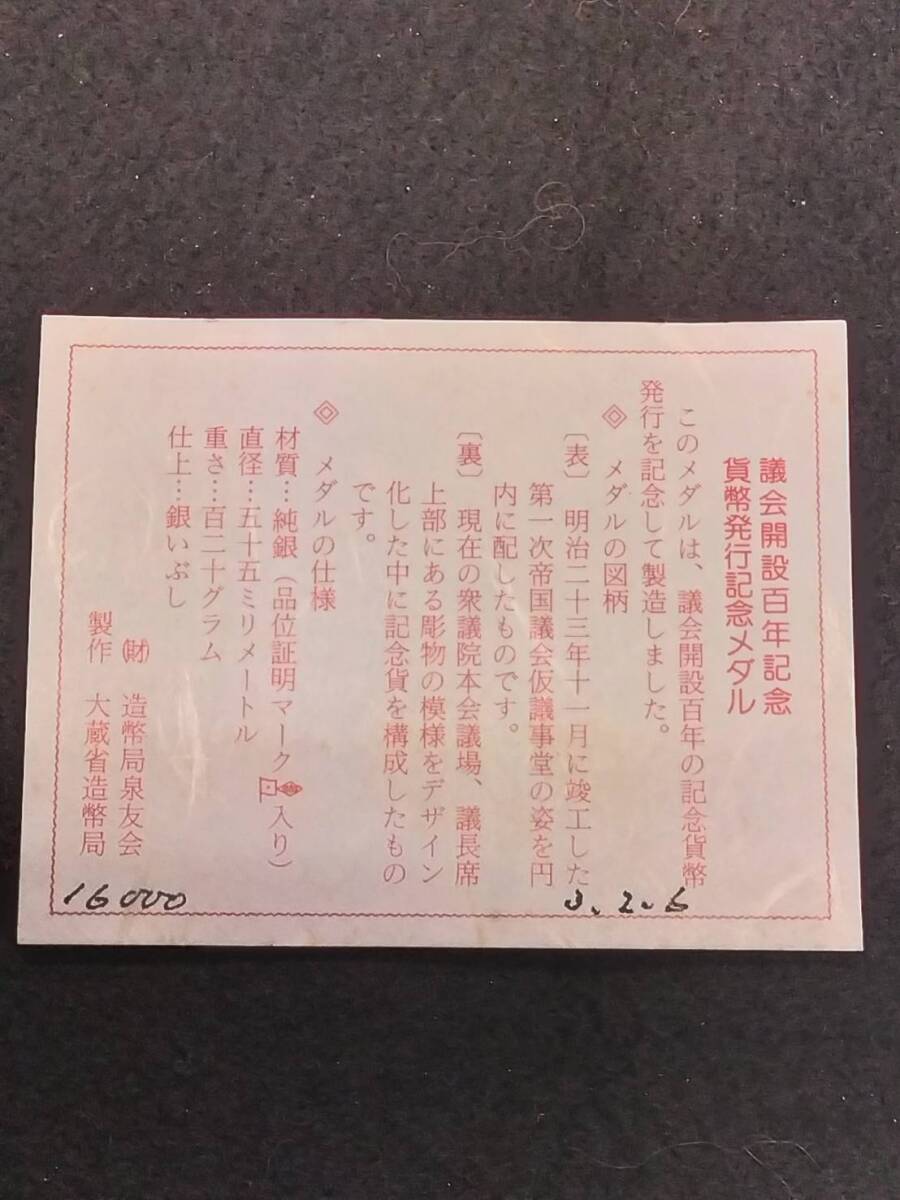 議会開設百年記念
貨幣発行記念メダル
このメダルは、議会開設百年の記念貨幣
発行を記念して製造しました。
◈ メダルの図柄
〔表〕 明治二十三年十一月に竣工した
第一次帝国議会仮議事堂の姿を円
内に配したものです。
〔裏〕 現在の衆議院本会議場、議長席
上部にある彫物の模様をデザイン
化した中に記念貨を構成したもの
です。
◈ メダルの仕様
材質…純銀(品位証明マーク入り)
直径…五十五ミリメートル
重さ…百二十グラム
仕上…銀いぶし
㈶ 造幣局泉友会
製作 大蔵省造幣局
3.2.6
16000